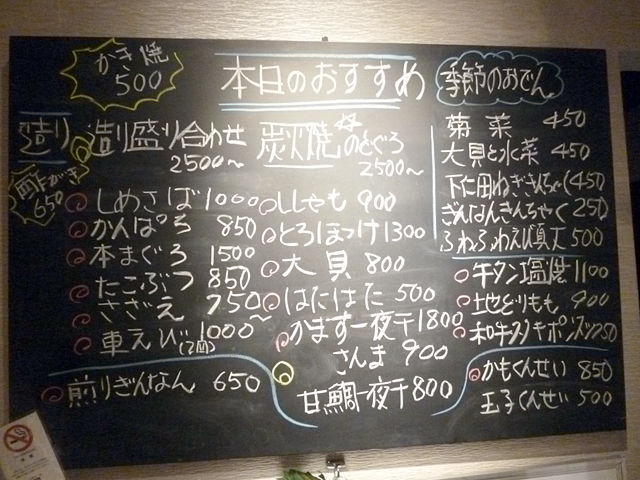 かき焼
500
本日のおすすめ
季節のおでん
造り
造り盛り合わせ
2500~
酢がき
650
しめさば 1000
かんぱち 850
本まぐろ 1500
たこぶつ 850
さざえ 750~
車えび(2尾) 1000
煎りぎんなん 650
炭火焼
のどぐろ
2500~
ししゃも 900
とろほっけ 1300
大貝 800
はたはた 500
かます一夜干 1800
さんま 900
甘鯛一夜干 800
菊菜 450
大貝と水菜 450
下仁田ねぎきんちゃく 450
ぎんなんきんちゃく 250
ふわふわえび真丈 500
牛タン塩焼 1100
地どりもも 900
和牛タタキポン酢
かもくんせい 850
玉子くんせい 500